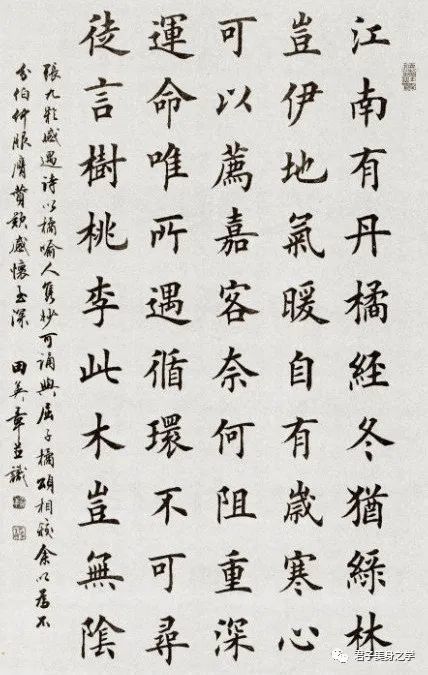 江南有丹橘經冬猶綠林
豈伊地氣暖自有歲寒心
可以薦嘉客奈何阻重深
運命唯所遇循環不可尋
徒言樹桃李此木豈無陰
張九齡感遇詩以橘喻人雋妙可誦與屈子橘頌相較余以為不
分伯仲服膺贊歎感懷至深 田英章並識
君子美身之学